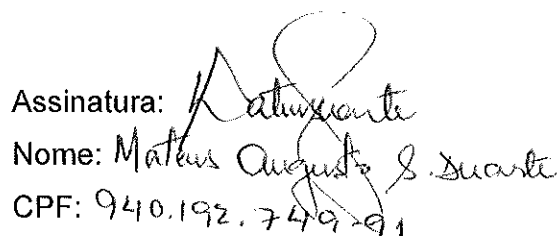 Assinatura:
Nome: Mateus Augusto S. Duarte
CPF: 940.192.749-91